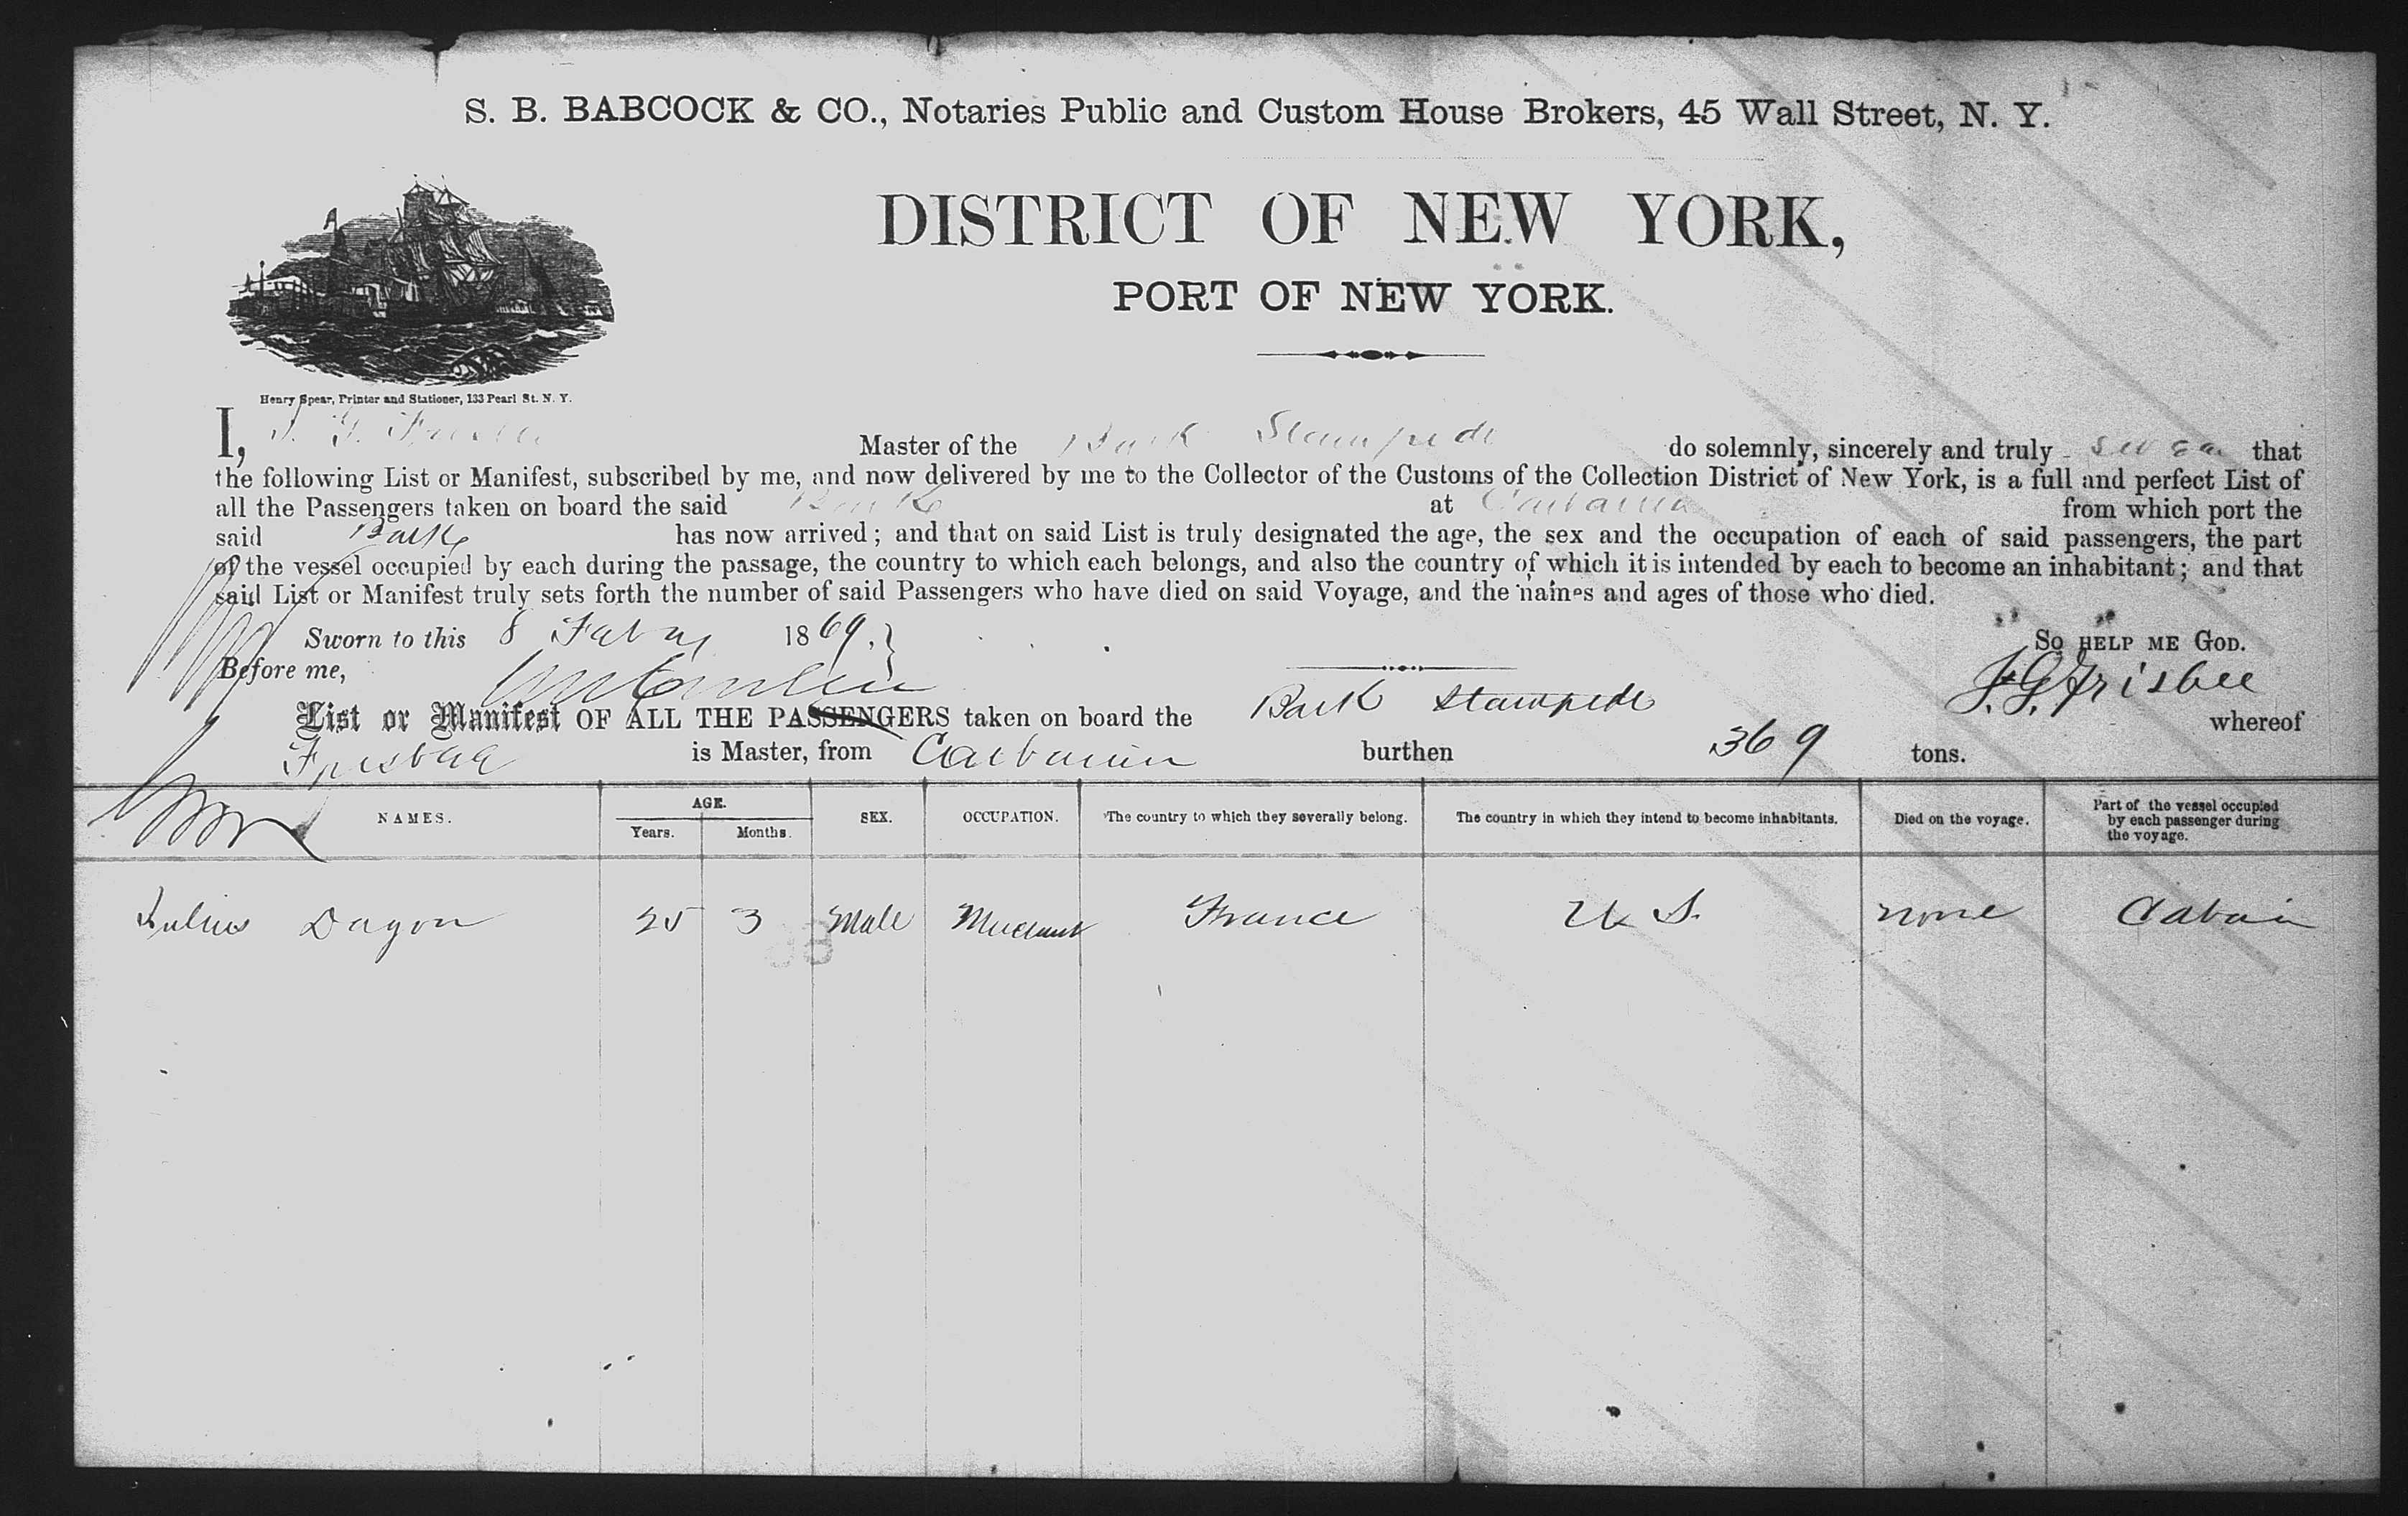 S. B. BABCOCK & CO., Notaries Public and Custom House Brokers, 45 Wall Street, N. Y.
DISTRICT OF NEW YORK,
PORT OF NEW YORK.
Henry Spear, Printer and Stationer, 133 Pearl St. N. Y.
I, Master of the Bark Stampede do solemnly, sincerely and truly swear that
the following List or Manifest, subscribed by me, and now delivered by me to the Collector of the Customs of the Collection District of New York, is a full and perfect List of
all the Passengers taken on board the said Bark at from which port the
said Bark has now arrived; and that on said List is truly designated the age, the sex and the occupation of each of said passengers, the part
of the vessel occupied by each during the passage, the country to which each belongs, and also the country of which it is intended by each to become an inhabitant; and that
said List or Manifest truly sets forth the number of said Passengers who have died on said Voyage, and the names and ages of those who died.
Sworn to this 8 1869. So HELP ME GOD.
Before me, Frisbee
List or Manifest OF ALL THE PASSENGERS taken on board the Bark Stampede whereof
is Master, from burthen 369 tons.
NAMES. AGE. Years. Months. SEX. OCCUPATION. The country to which they severally belong. The country in which they intend to become inhabitants. Died on the voyage. Part of the vessel occupied by each passenger during the voyage.
Julius Dagon 25 3 Male Merchant France U S. none Cabin